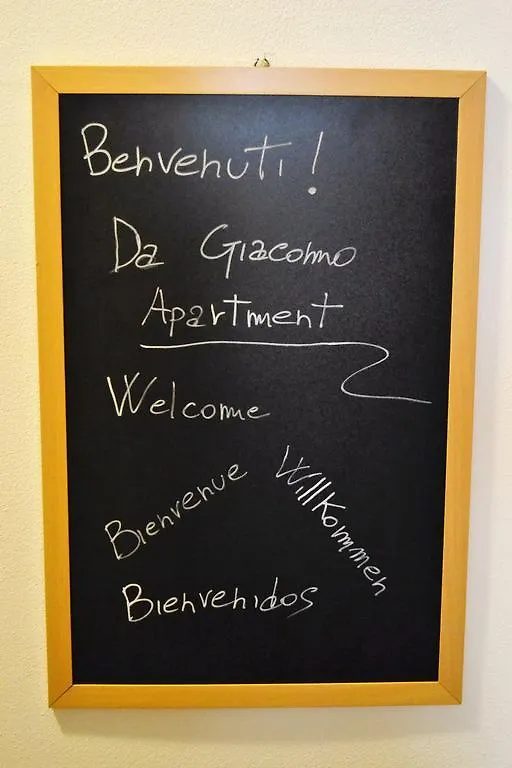 Benvenuti!
Da Giacomo
Apartment
Welcome
Bienvenue
Willkommen
Bienvenidos